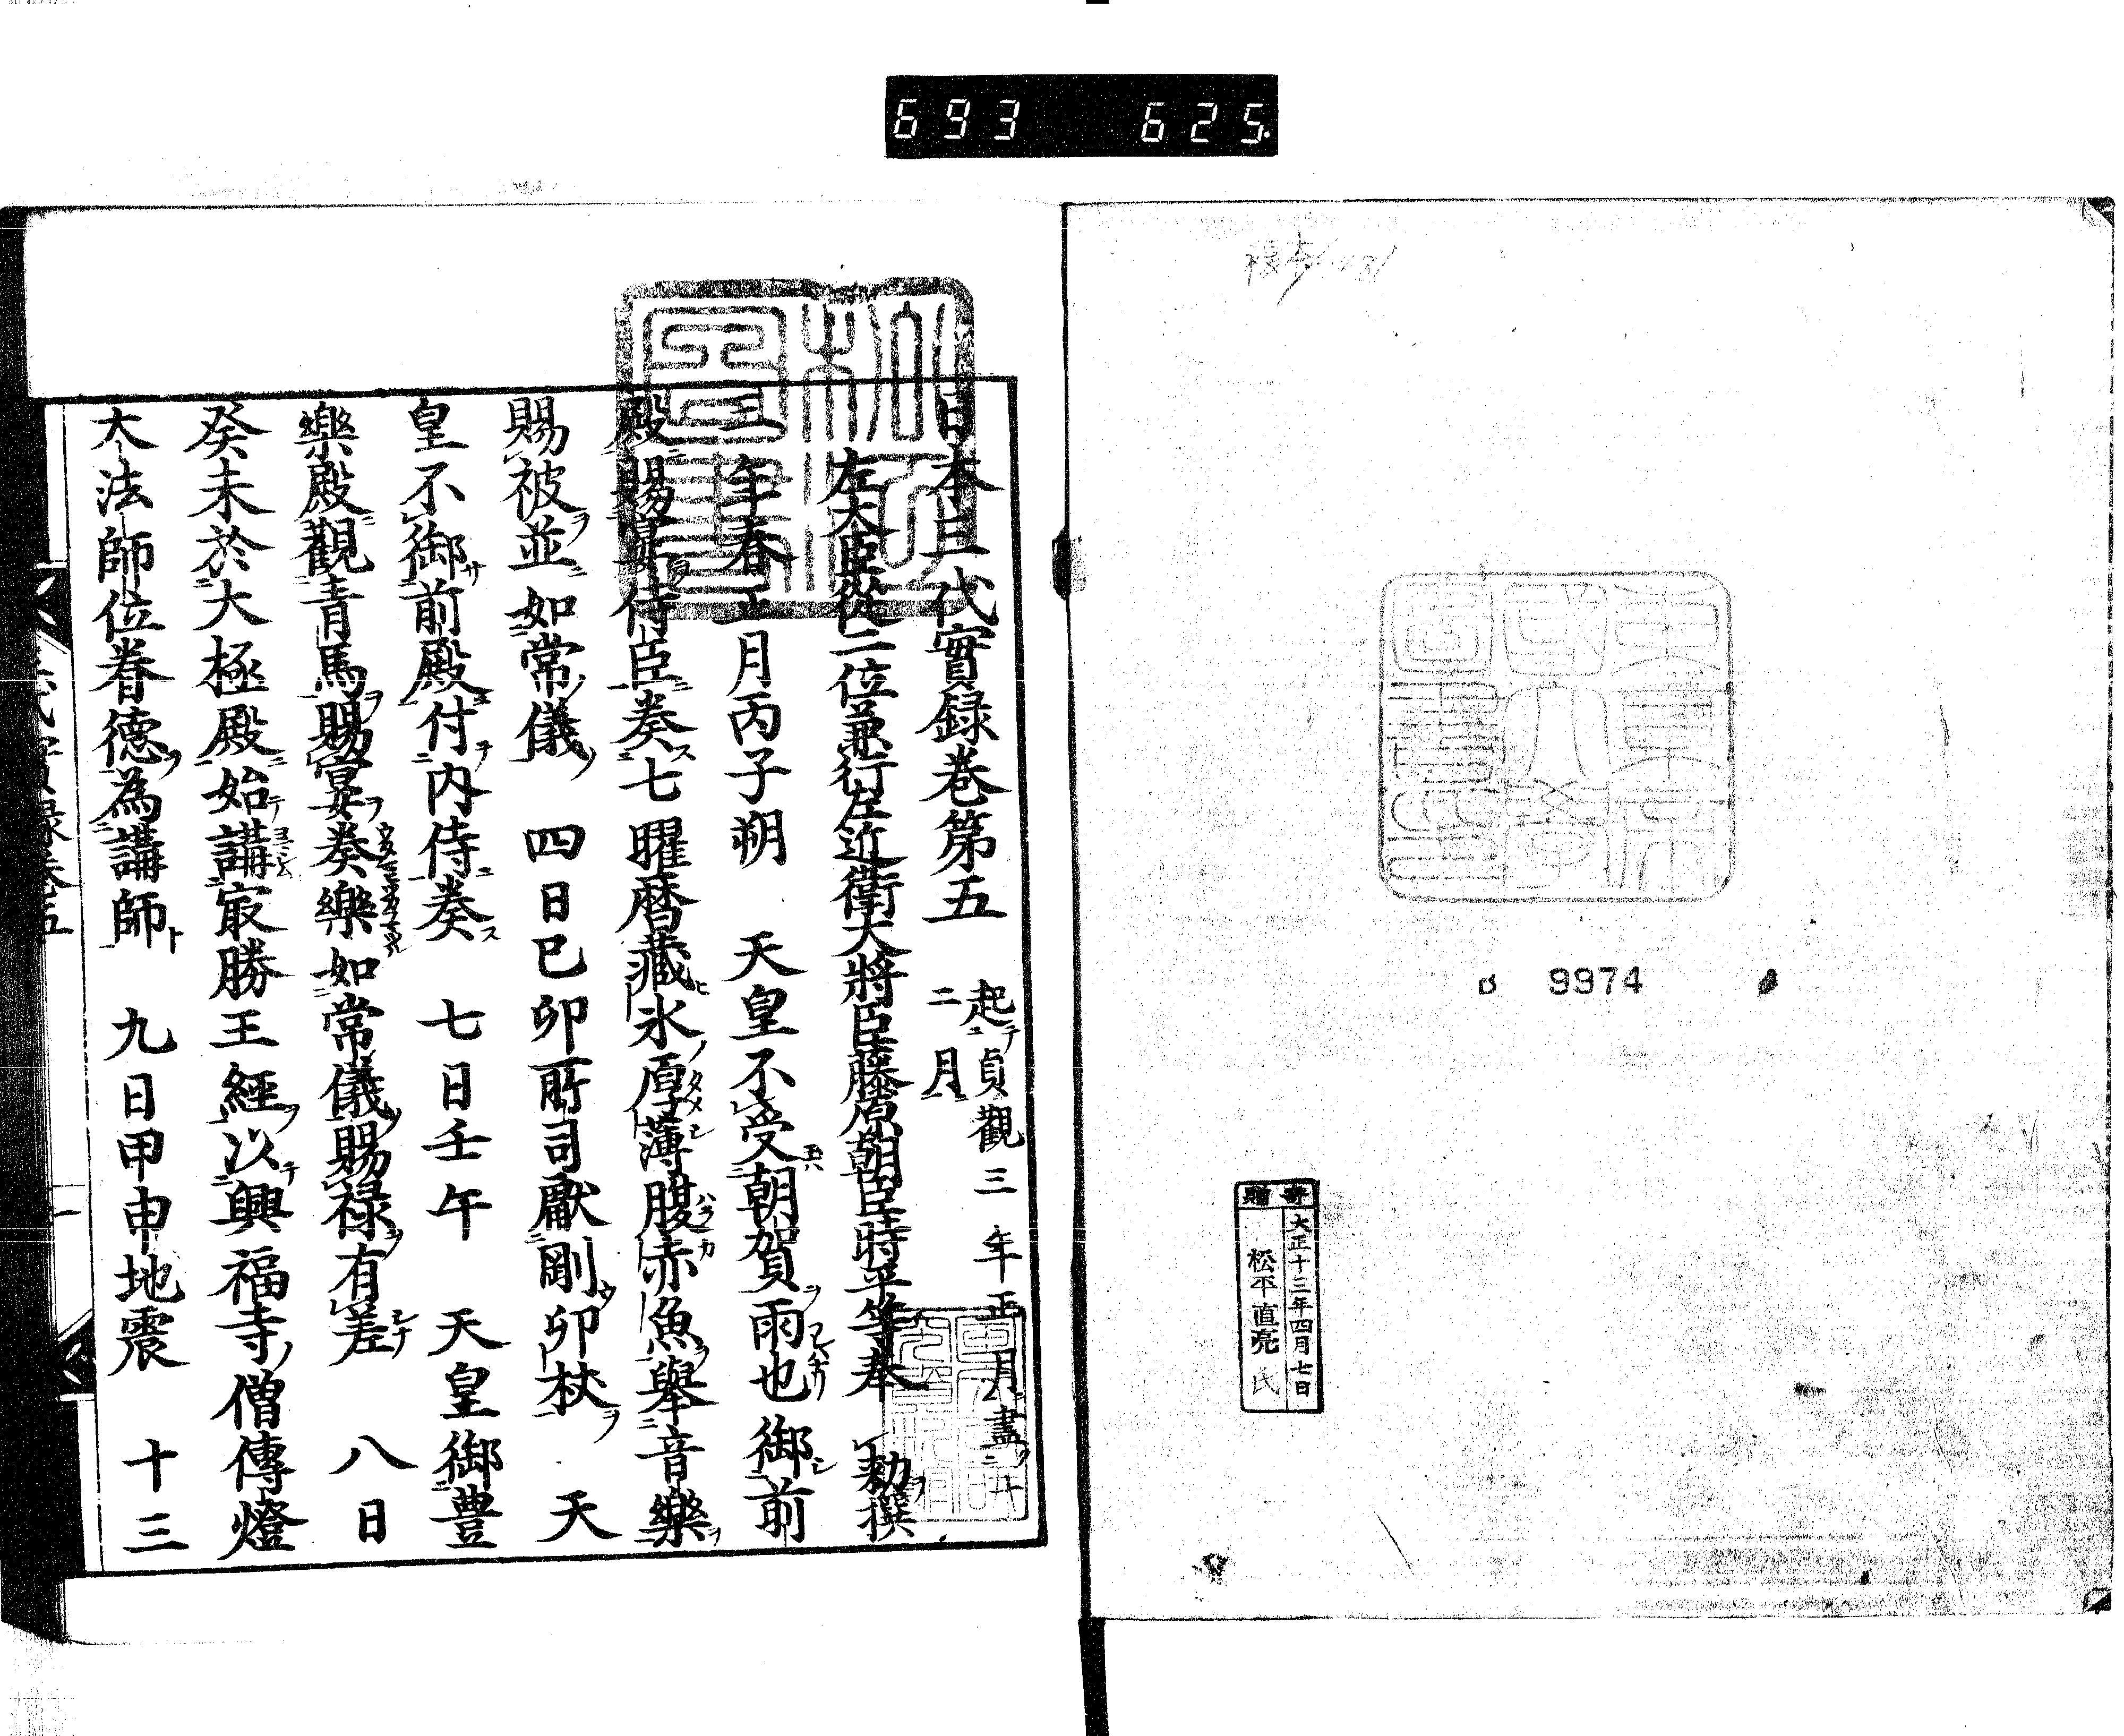 693 625
複本
東京帝國大學圖書印
B 9974
寄贈
大正十三年四月七日
松平直亮氏
日本三代實録巻第五 起貞觀三年正月盡十二月
左大臣從二位兼行左近衛大將臣藤原朝臣時平等奉 勅撰
三年春正月丙子朔 天皇不受朝賀雨也御前
殿賜宴侍臣奏七曜暦藏氷厚薄腹赤魚舉音樂
賜被並如常儀 四日己卯所司獻剛卯杖 天
皇不御前殿付内侍奏 七日壬午 天皇御豊
樂殿觀青馬賜宴奏樂如常儀賜禄有差 八日
癸未於大極殿始講㝡勝王經以興福寺僧傳燈
大法師位眷德為講師 九日甲申地震 十三
三代實録巻五
一